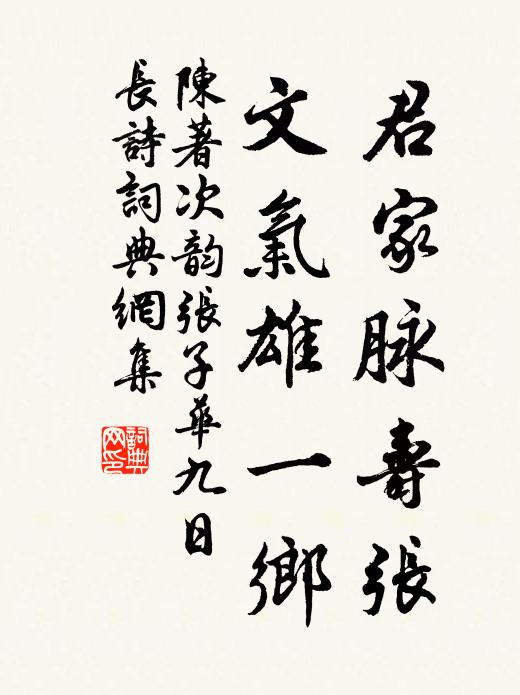 君家脉壽張
文氣雄一鄉
陳著次韵張子華九日
長詩詞典網集
詞典網印